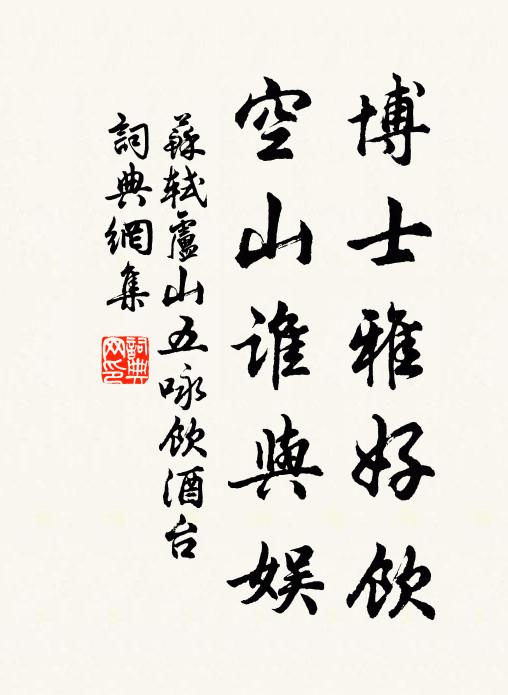 博士雅好飲
空山誰與娛
蘇軾廬山五咏飲酒台
詞典網集
詞典網印